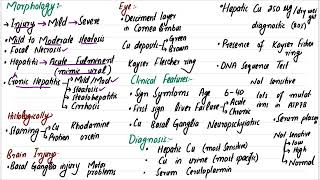 Morphology:-
• Injury → Mild → Severe
• Mild to Moderate Steatosis
• Focal Necrosis
• Hepatitis → Acute Fulminant (mimic viral)
• Chronic Hepatitis → Mild/Mod
→ Steatosis
→ Steatohepatitis
→ Cirrhosis
Histologically
• Staining → Cu Rhodamine
Protein orcein
Brain Injury
• Basal Ganglia injury Motor problems
Eye:-
• Descment layer in Cornea limbus
Cu deposits → Green
→ Brown
Kayser Fleicher ring
Clinical Features:-
• Sign Symptoms Age 6-40
• First sign liver Failure → Acute
→ Chronic
• Cu Basal Ganglia Neuropsychiatric
Diagnosis:-
• Hepatic Cu (most Sensitive)
• Cu in urine (most specific)
• Serum Ceruloplasmin
• Hepatic Cu 250 ug/dry wgt
diagnostic
• Presence of Keyser Fisher rings
• DNA Sequence Test
Not sensitive
lots of mutations in ATP7B
• Serum plasma
Not sensitive
→ low
→ High
→ Normal